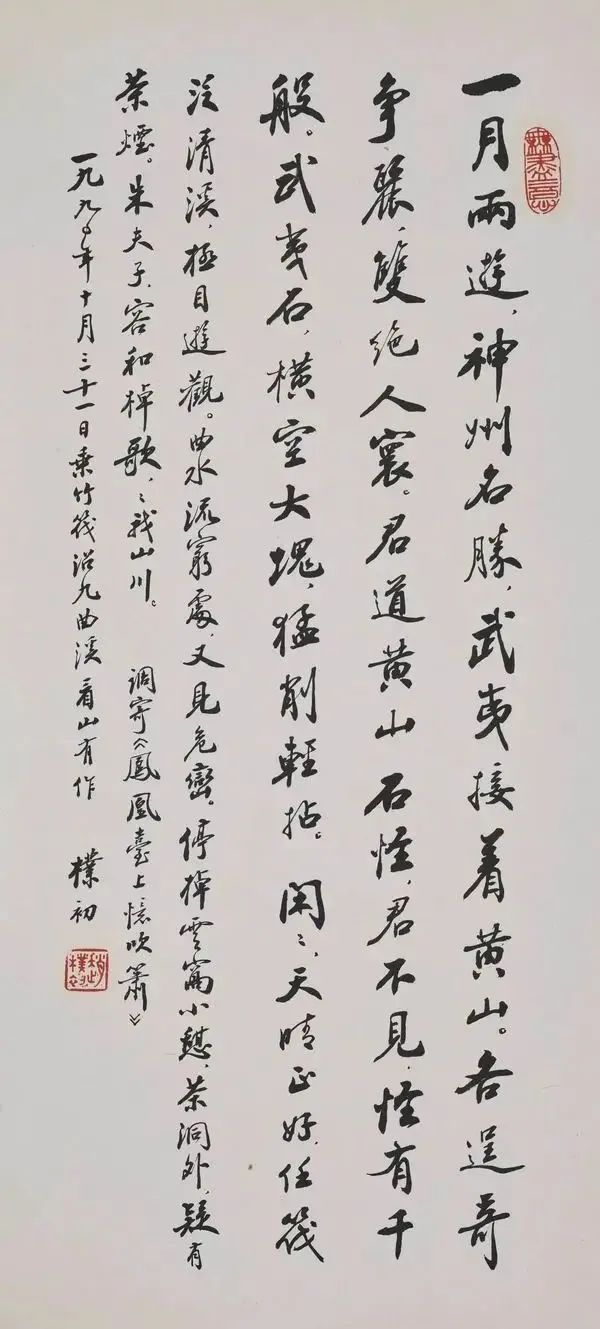 一月兩遊，神州名勝，武夷接着黄山。各逞奇
争麗，雙絶人寰。君道黄山石怪，君不見，怪有千
般。武夷石，横空大塊，猛削輕拈。閑〻，天晴正好，任筏
泛清溪，極目遊觀。曲水流窮處，又見危巒。停棹雲窩小憩，茶洞外，疑有
茶煙。朱夫子，容和棹歌，〻我山川。
調寄《鳳凰臺上憶吹簫》
一九九〇年十月三十一日乘竹筏沿九曲溪看山有作
樸初
趙樸初
無盡意